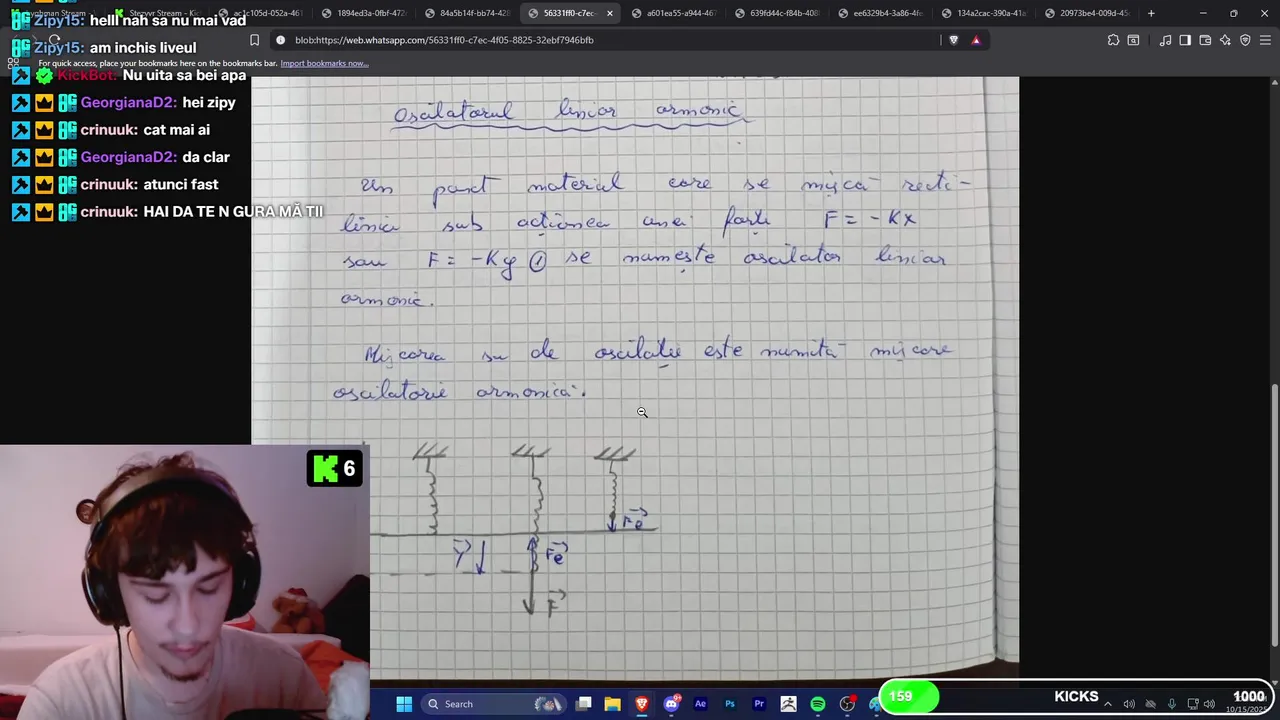 Zipy15: helll nah sa nu mai vad
Zipy15: am inchis liveul
KickBot: Nu uita sa bei apa
GeorgianaD2: hei zipy
crinuuk: cat mai ai
GeorgianaD2: da clar
crinuuk: atunci fast
crinuuk: HAI DA TE N GURA MĂ TII
Stream
ac1c105d-052a-4
1894ed3a-0fbf-472
56331ff0-c7ec
a601ea55-a944-4
134a2cac-390a-41a
20973be4-009d-45
blob:https://web.whatsapp.com/56331ff0-c7ec-4f05-8825-32ebf7946bfb
For quick access, place your bookmarks here on the bookmarks bar. Import bookmarks now...
Oscilatorul liniar armonic
Un punct material care se mișcă recti-
liniu sub acțiunea unei forțe F = -Kx
sau F = -Ky ① se numește oscilator liniar
armonic.
Mișcarea sa de oscilație este numită mișcare
oscilatorie armonică.
Fe
Y Fe
F
K 6
Search
Ae
Ps
Pr
159
KICKS
1000
10/15/202